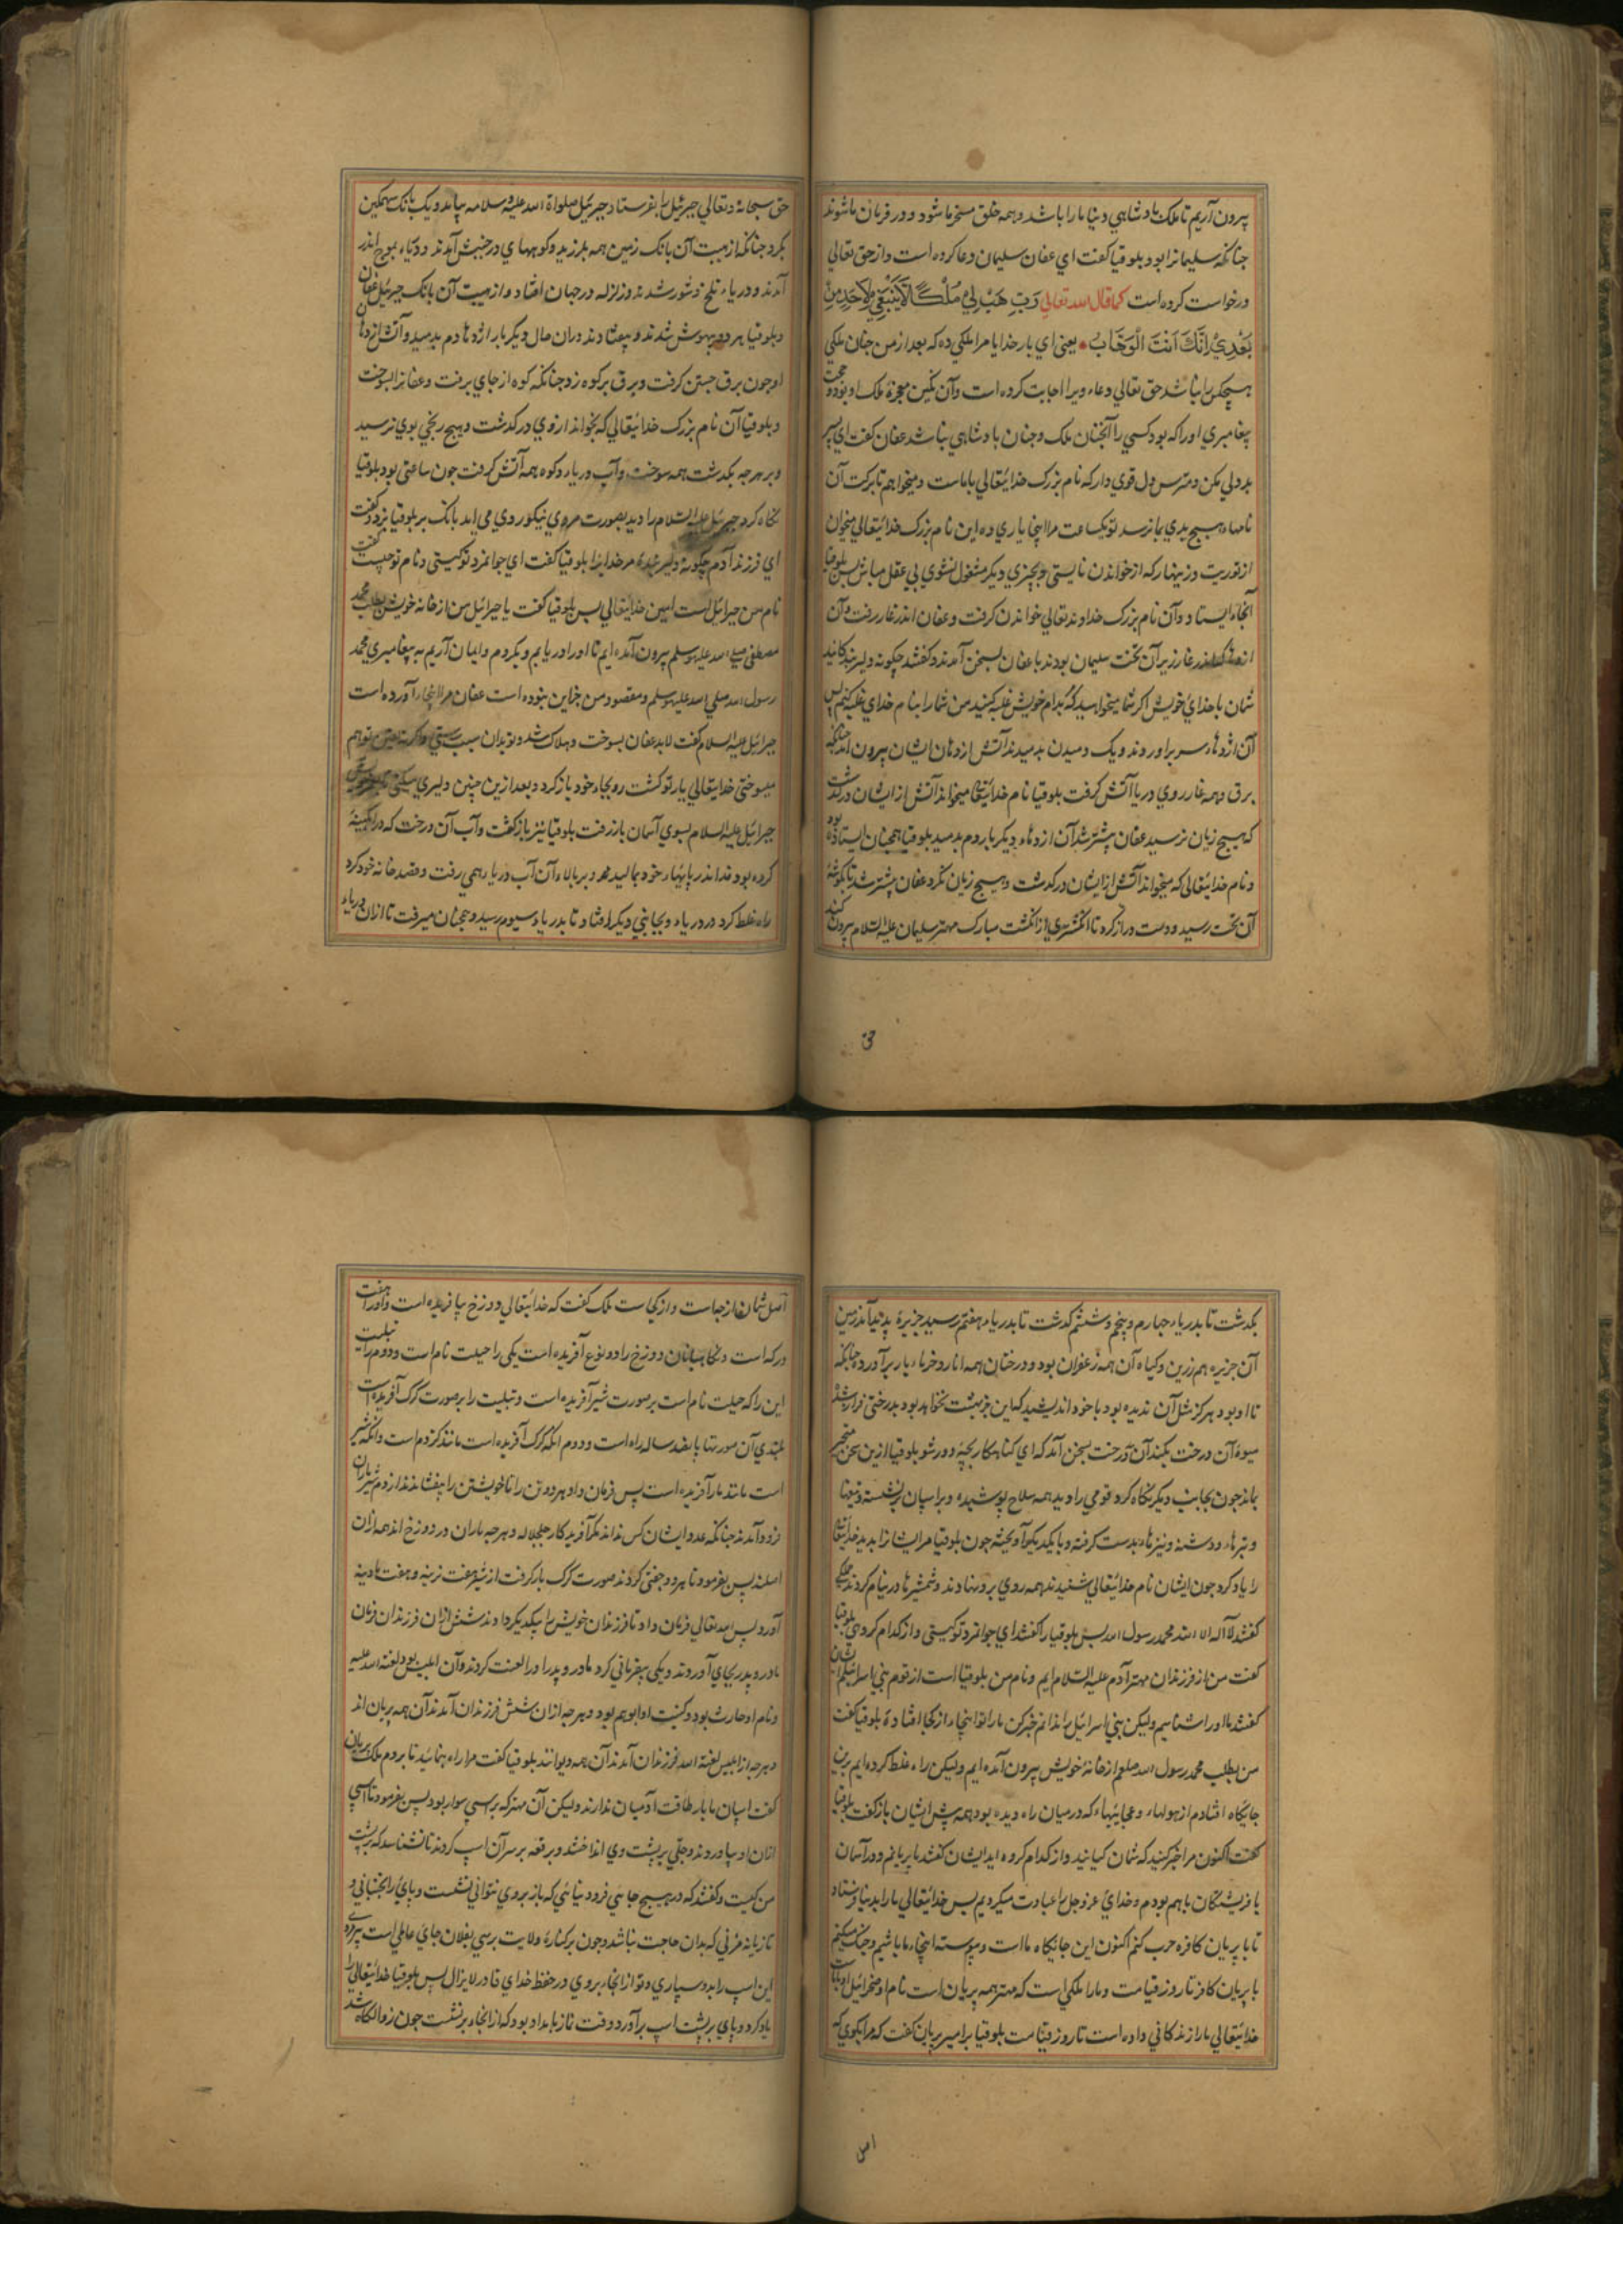 پرون آریم تا ملک پادشاهی دنیا ما را باشد و همه خلق مسخر ما شود و در فرمان ما شوند
جنانکه سلیمانرا بود بلوقیا کفت ای عفان سلیمان دعا کرده است و از حق تعالی
درخواست کرده است کما قال الله تعالی رَبِّ هَبْ لِیْ مُلْکًا لَا یَنْبَغِی لِاَحَدٍ مِنْ
بَعْدِیْ اِنَّکَ اَنْتَ الْوَهَّابُ یعنی ای بار خدایا مرا ملکی ده که بعد از من جنان ملکی
هیچکس را نباشد حق تعالی دعاء ویرا اجابت کرده است و آن نکین معجزهٔ ملک او بود و حجت
پیغامبری او را که بود کسی را آنجنان ملک و جنان پادشاهی نباشد عفان کفت ای پسر
بد دلی مکن و مترس دل قوی دار که نام بزرک خدایتعالی با ماست و میخواهم تا برکت آن
نامهاء هیچ بدی بما نرسد تو یکساعت مرا اینجا یاری ده این نام بزرک خدایتعالی میخوان
از توریت و زینهار که از خواندن نایستی و بچیزی دیکر مشغول نشوی بی عقل مباش پس بلوقیا
آنجا بایستاد و آن نام بزرک خداوند تعالی خواندن کرفت و عفان اندر غار رفت و آن
اژدها که اندر غار زیر آن تخت سلیمان بودند با عفان بسخن آمدند و کفتند چکونه دلیر
شان با خدای خویش اکر شما میخواهید که بدام خویش غلبه کنید من شما را بنام خدای غلبه کنم پس
آن اژدهاء سر براوردند و یک دمیدن بدمیدند آتش از دهان ایشان پرون آمد جنانکه
برق و همه غار روی دریا آتش کرفت بلوقیا نام خدایتعالی میخواند آتش از ایشان درکذشت
که هیچ زیان نرسید عفان پشتر شد آن اژدهاء دیکر بار دوم بدمید بلوقیا همچنان ایستاده بود
و نام خدایتعالی که میخواند آتش از ایشان درکذشت و هیچ زیان نکرد عفان پشتر شد تا بکوشهٔ
آن تخت رسید و دست دراز کرد تا انکشتری از انکشت مبارک مهتر سلیمان علیه السلام پرون کند
حق سبحانه و تعالی جبرئیل را بفرستاد جبرئیل صلواة الله علیه و سلامه بیامد و یک بانک سهمکین
بکرد جنانکه از هیبت آن بانک زمین همه بلرزید و کوهها ی در جنبش آمدند و دریاء بموج اندر
آمدند و دریاء تلخ و شور شدند و زلزله در جهان افتاد و از هیبت آن بانک جبرئیل عفان
و بلوقیا هر دو بیهوش شدند و بیفتادند دران حال دیکر بار اژدها دم بدمید و آتش از دهان
او جون برق جستن کرفت و برق بر کوه زد جنانکه کوه از جای برفت و عفانرا بسوخت
و بلوقیا آن نام بزرک خدایتعالی که بخواند از وی درکذشت و هیچ رنجی بوی نرسید
و بر هرجه بکذشت همه سوخت و آب دریاء و کوه همه آتش کرفت جون ساعتی بود بلوقیا
نکاه کرد جبرئیل علیه السلام را دید بصورت مردی نیکو روی می آمد بانک بر بلوقیا بزد و کفت
ای فرزند آدم چکونه دلیر شدهٔ مر خدایرا بلوقیا کفت ای جوانمرد تو کیستی و نام تو چیست کفت
نام من جبرائیل است امین خدایتعالی پس بلوقیا کفت یا جبرائیل من از خانه خویش بطلب محمد
مصطفی صلی الله علیه و سلم پرون آمده ایم تا او را دریابیم و بکردم و ایمان آریم به پیغامبری محمد
رسول الله صلی الله علیه و سلم و مقصود من جز این نبوده است عفان مرا اینجا آورده است
جبرائیل علیه السلام کفت لابد عفان بسوخت و هلاک شد و تو بدان سبب رستی و اکرنه تو هم
میسوختی خدایتعالی یار تو کشت رو بجاء خود باز کرد و بعد ازین چنین دلیری مکن
جبرائیل علیه السلام بسوی آسمان باز رفت بلوقیا نیز باز کشت و آب آن درخت که در آبکینه
کرده بود قدا اندر پایهاء خود بمالید و بر بالاء آن آب دریاء همی رفت و قصد خانه خود کرد
راه غلط کرد در دریاء و بجانبی دیکر افتاد تا بدریاء سیوم رسید و همچنان میرفت تا ازان دریاء
بکذشت تا بدریاء چهارم و پنجم و ششم کذشت تا بدریاء هفتم رسید جزیرهٔ پدید آمد زمین
آن جزیره هم زرین و کیاه آن همه زعفران بود و درختان همه انار و خرماء بار برآورده چنانکه
تا او بود هرکز مثل آن ندیده بود با خود اندیشید که این جز بهشت نخواهد بود بدرختی فراز شد تا
میوهٔ آن درخت بکند آن درخت بسخن آمد که ای کناهکار بچه دور شو بلوقیا ازین سخن متحیر
بماند جون بجانب دیکر نکاه کرد قومی را دید همه سلاح پوشیده و بر اسپان نشسته و تیغها
و تبرهاء و دشنه و نیزهاء بدست کرفته و با یکدیکر آویخته جون بلوقیا مر ایشانرا بدید خدایتعالی
را یاد کرد جون ایشان نام خدایتعالی شنیدند همه روی برو نهادند و شمشیرها در نیام کردند جمله
کفتند لا اله الا الله محمد رسول الله پس بلوقیا را کفتند ای جوانمرد تو کیستی و از کدام کروهی بلوقیا
کفت من از فرزندان مهتر آدم علیه السلام ایم و نام من بلوقیا است از قوم بنی اسرائیلم ایشان
کفتند ما او را شناسیم ولیکن بنی اسرائیل را ندانم خبر کن ما را تو اینجاء از کجا افتادهٔ بلوقیا کفت
من بطلب محمد رسول الله صلعم از خانهٔ خویش پرون آمده ایم ولیکن راه غلط کرده ایم برین
جایکاه افتادم از هولهاء و عجایبهاء که در میان راه دیده بود همه پش ایشان باز کفت بلوقیا
کفت اکنون مرا خبر کنید که شمان کیانید و از کدام کروه اید ایشان کفتند ما پریانیم و در آسمان
با فریشتکان باهم بودم و خدای عز و جل را عبادت میکردیم پس خدایتعالی ما را بدنیا فرستاد
تا با پریان کافره حرب کنم اکنون این جایکاه ما است و پیوسته اینجاء ما باشیم و جنک میکنیم
با پریان کافر تا روز قیامت و ما را ملکی است که مهتر همه پریان است نام او صخرائیل
خدایتعالی ما را زندکانی داده است تا روز قیامت بلوقیا بر امیر پریان کفت که مرا بکوی که
اصل شمان از چیاست و از کجاست ملک کفت که خدایتعالی دوزخ بیافریده است و او را هفت
درکه است و نکاهبانان دوزخ را دو نوع آفریده است یکی را حبلیت نام است و دوم را تبلیت
این را که حبلیت نام است بر صورت شیر آفریده است و تبلیت را بر صورت کرک آفریده است
بلندی آن صورتها پانصد ساله راه است و دوم انکه کرک آفریده است مانند کژدم است و انکه شیر
است مانند مار آفریده است پس فرمان داد هر دو تن را تا خویشتن را بیفشانند از دم شیر ماران
فرود آمدند چنانکه عدد ایشان کس نداند مکر آفریدکار جل جلاله و هرجه ماران در دوزخ اند همه ازان
اصلند پس بفرمود تا هر دو جفتی کردند صورت کرک بار کرفت از شیر هفت نرینه و هفت مادینه
آورد پس الله تعالی فرمان داد تا فرزندان خویش را بیکدیکر دادند شش ازان فرزندان فرمان
مادر و پدر بجای آوردند و یکی بیفرمانی کرد مادر و پدر او را لعنت کردند و آن ابلیس بود لعنة الله علیه
و نام او حارث بود و کنیت او ابو هم بود و هرجه ازان شش فرزندان آمدند آن همه پریان اند
و هرجه از ابلیس لعنة الله فرزندان آمدند آن همه دیوانند بلوقیا کفت مرا راه بنمائید تا بروم ملک پریان
کفت اسپان ما بار طاقت آدمیان ندارند ولیکن آن مهتر که بر اسپی سوار بود پس بفرمود تا اسپی
ازان او بیاوردند و جلی بر پشت وی انداختند و برقعه بر سر آن اسپ کردند تا نشناسد که بر پشت
من کیست و کفتند که در هیچ جاهی فرود نیائی که باز بروی نتوانی نشست و پای را بجنبانی و
تازیانه مزنی که بدان حاجت نباشد و جون بر کنارهٔ ولایت برسی بفلان جای عاملی است پیر مرد
این اسپ را بدو سپاری و تو از انجاء بروی در حفظ خدای قادر لایزال پس بلوقیا خدایتعالی را
یاد کرد و پای بر پشت اسپ برآورد و وقت نماز بامداد بود که از انجاء برنشست جون زوالکاه شد
امن